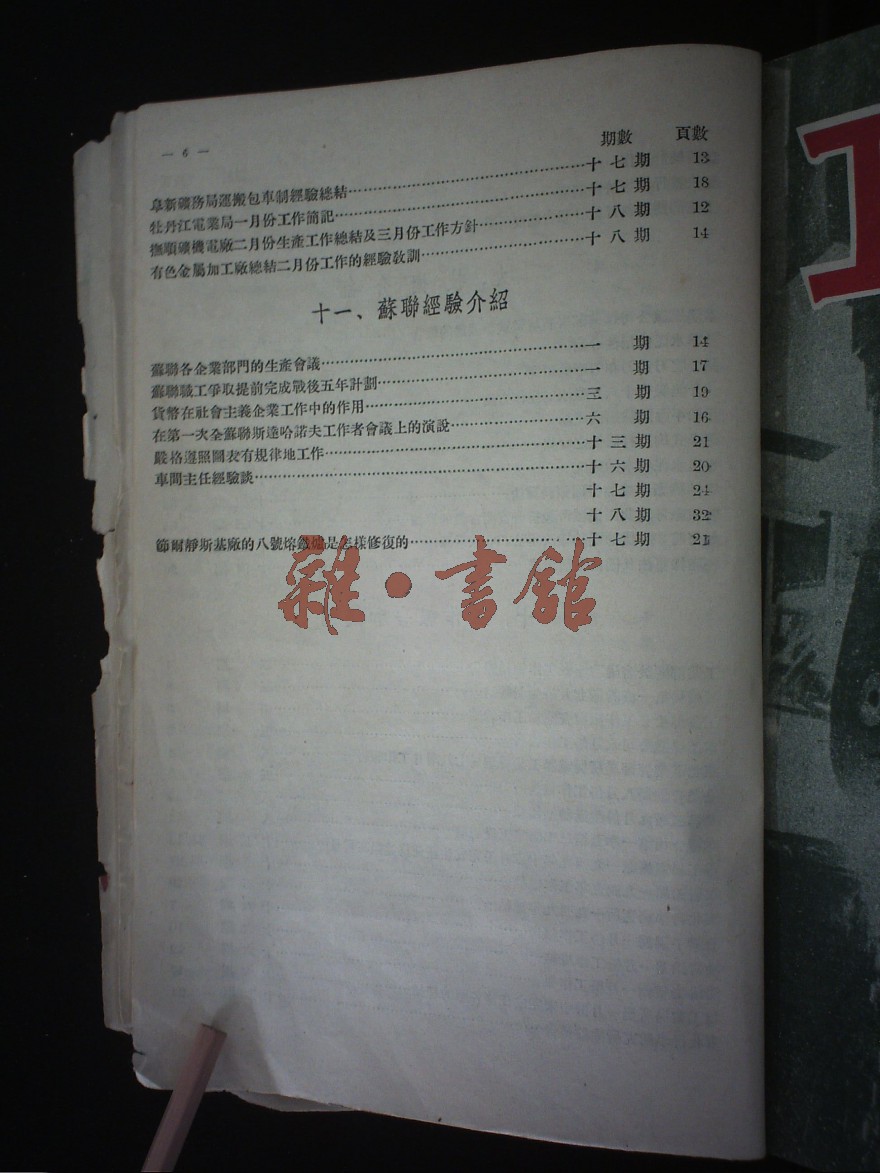 — 6 —
期數 頁數
阜新礦務局運搬包車制經驗總結……十七期 13
牡丹江電業局一月份工作簡記……十七期 18
撫順礦機電廠二月份生產工作總結及三月份工作方針……十八期 12
有色金屬加工廠總結二月份工作的經驗敎訓……十八期 14
十一、蘇聯經驗介紹
蘇聯各企業部門的生產會議……一期 14
蘇聯職工爭取提前完成戰後五年計劃……一期 17
貨幣在社會主義企業工作中的作用……三期 19
在第一次全蘇聯斯達哈諾夫工作者會議上的演說……六期 16
嚴格遵照圖表有規律地工作……十三期 21
車間主任經驗談……十六期 20
十七期 24
十八期 32
節爾靜斯基廠的八號熔鐵爐是怎樣修復的……十七期 21
雜·書館